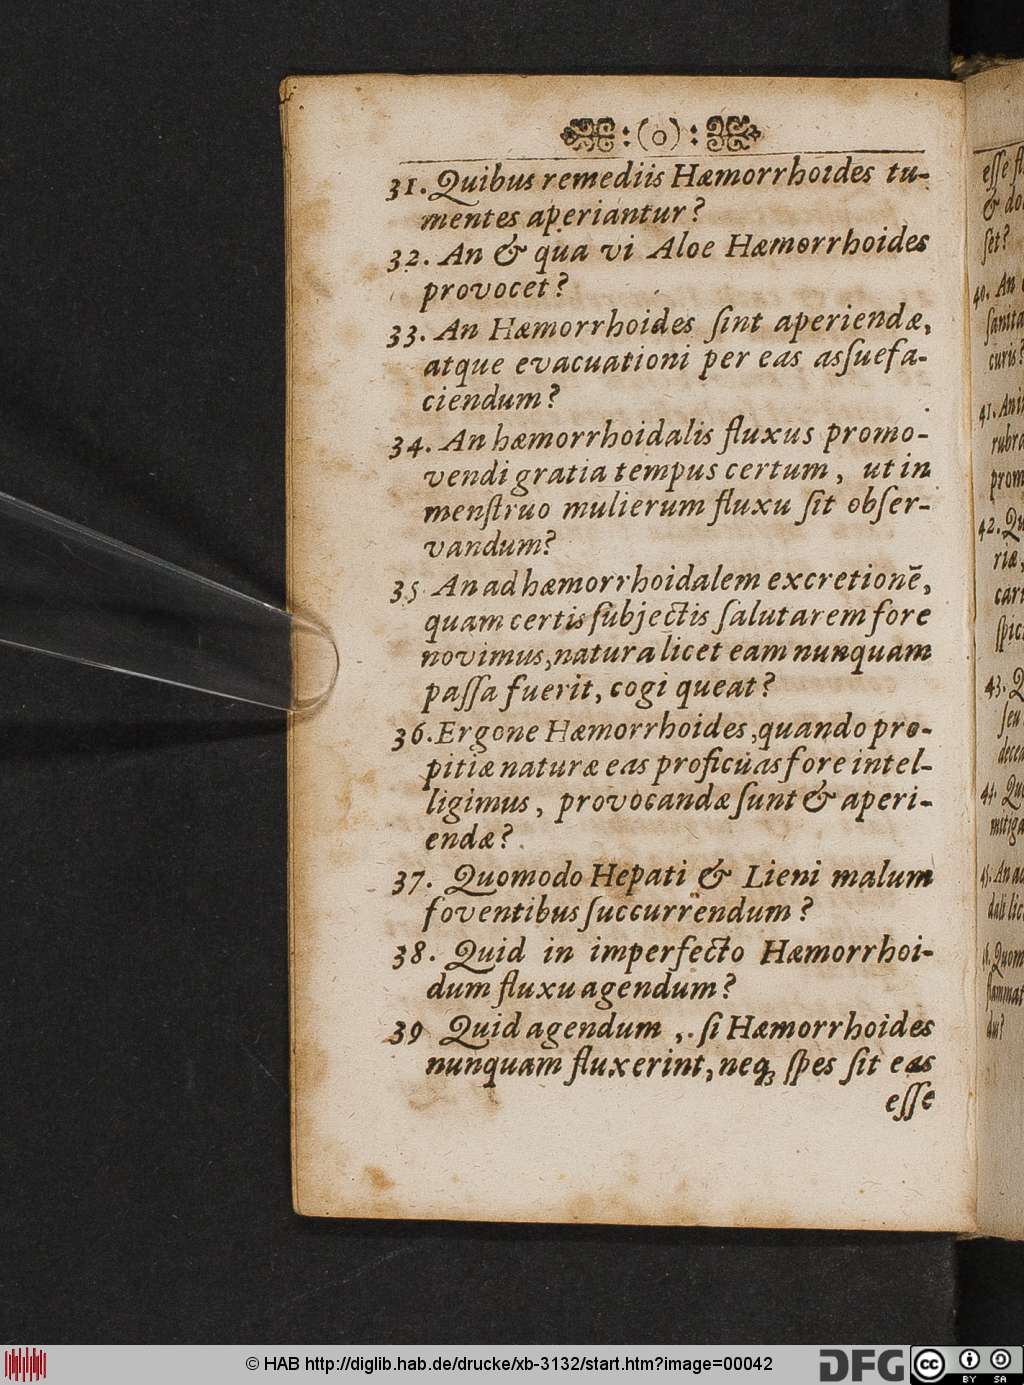 :(o):
31. Quibus remediis Hæmorrhoides tu-
mentes aperiantur?
32. An & qua vi Aloe Hæmorrhoides
provocet?
33. An Hæmorrhoides ſint aperiendæ,
atque evacuationi per eas asſuefa-
ciendum?
34. An hæmorrhoidalis fluxus promo-
vendi gratia tempus certum, ut in
menſtruo mulierum fluxu ſit obſer-
vandum?
35 An ad hæmorrhoidalem excretionē,
quam certis ſubjectis ſalutarem fore
novimus, natura licet eam nunquam
paſſa fuerit, cogi queat?
36. Ergone Hæmorrhoides, quando pro-
pitiæ naturæ eas proficuas fore intel-
ligimus, provocandæ ſunt & aperi-
endæ?
37. Quomodo Hepati & Lieni malum
foventibus ſuccurrendum?
38. Quid in imperfecto Hæmorrhoi-
dum fluxu agendum?
39 Quid agendum, ſi Hæmorrhoides
nunquam fluxerint, neq; ſpes ſit eas
eſſe
eſſe
&
ſet?
40. An
curis?
41.
42.
riæ,
43.
ſeu
44.
45. An
du?
© HAB http://diglib.hab.de/drucke/xb-3132/start.htm?image=00042
DFG
cc
BY SA